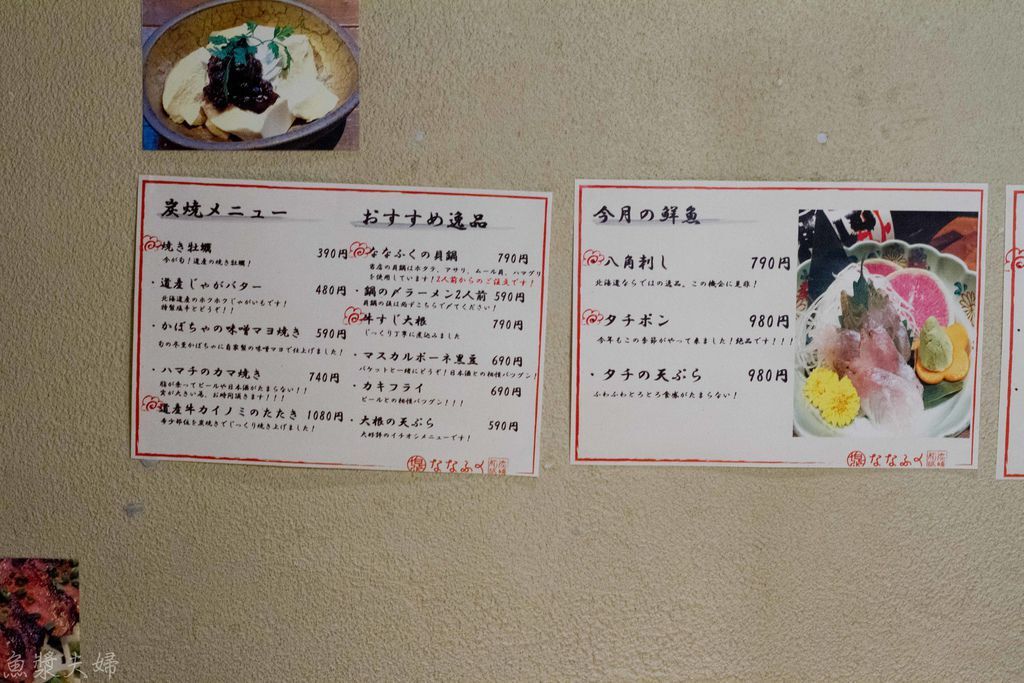 炭焼メニュー
焼き牡蠣 390円
今が旬！道産の焼き牡蠣！
・道産じゃがバター 480円
北海道産のホクホクじゃがいもです！
特製塩辛とどうぞ！！
・かぼちゃの味噌マヨ焼き 590円
旬の冬至かぼちゃに自家製の味噌マヨで仕上げました！
・ハマチのカマ焼き 740円
脂が乗ってビールや日本酒がたまらない！！
身が大きい為、お時間頂きます！！！
道産牛カイノミのたたき 1080円
希少部位を炭焼きでじっくり焼き上げました！
おすすめ逸品
ななふくの貝鍋 790円
当店の貝鍋はホタテ、アサリ、ムール貝、ハマグリ
を使用しています！2人前からのご注文です！
・鍋の〆ラーメン2人前 590円
貝鍋の後は必ずこちらで〆てください！
牛すじ大根 790円
じっくり丁寧に煮込みました
・マスカルポーネ黒豆 690円
バケットと一緒にどうぞ！日本酒との相性バツグン！
・カキフライ 690円
ビールとの相性バツグン！！！
・大根の天ぷら 590円
大将絆のイチオシメニューです！
ななふく
今月の鮮魚
八角刺し 790円
北海道ならではの逸品。この機会に是非！
タチポン 980円
今年もこの季節がやって来ました！絶品です！！！
・タチの天ぷら 980円
ふわふわとろとろ食感がたまらない！
ななふく
魚漿夫婦